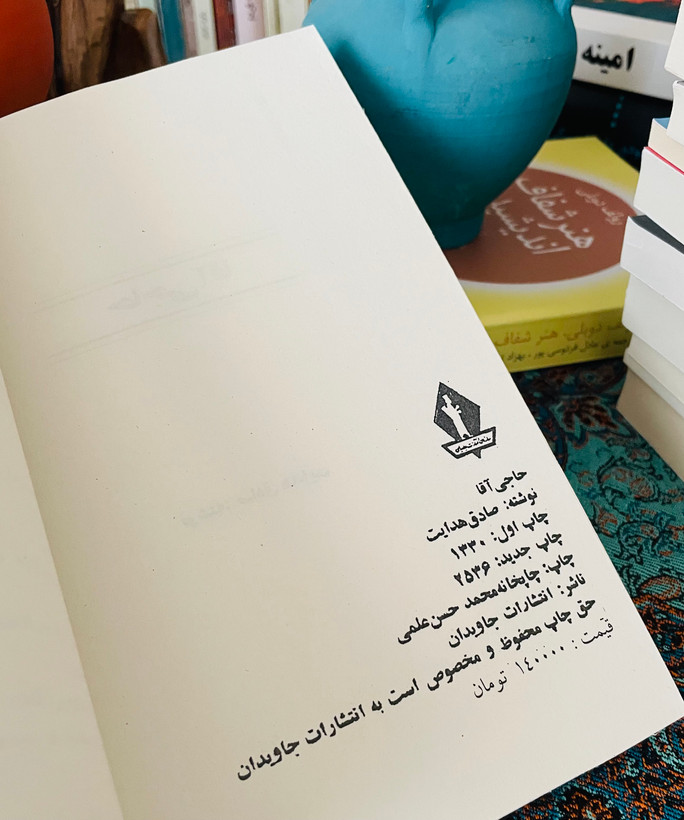 حاجی آقا
نوشته: صادق هدایت
چاپ اول: ۱۳۳۰
چاپ جدید: ۲۵۳۶
چاپ: چاپخانه محمد حسن علمی
ناشر: انتشارات جاویدان
حق چاپ محفوظ و مخصوص است به انتشارات جاویدان
قیمت: ۱٤۰۰۰۰ تومان
امینه
رولف دوبلی
هنر شفاف
دوبلی، هنر شفاف
عادل فردوسی پور، بهزاد